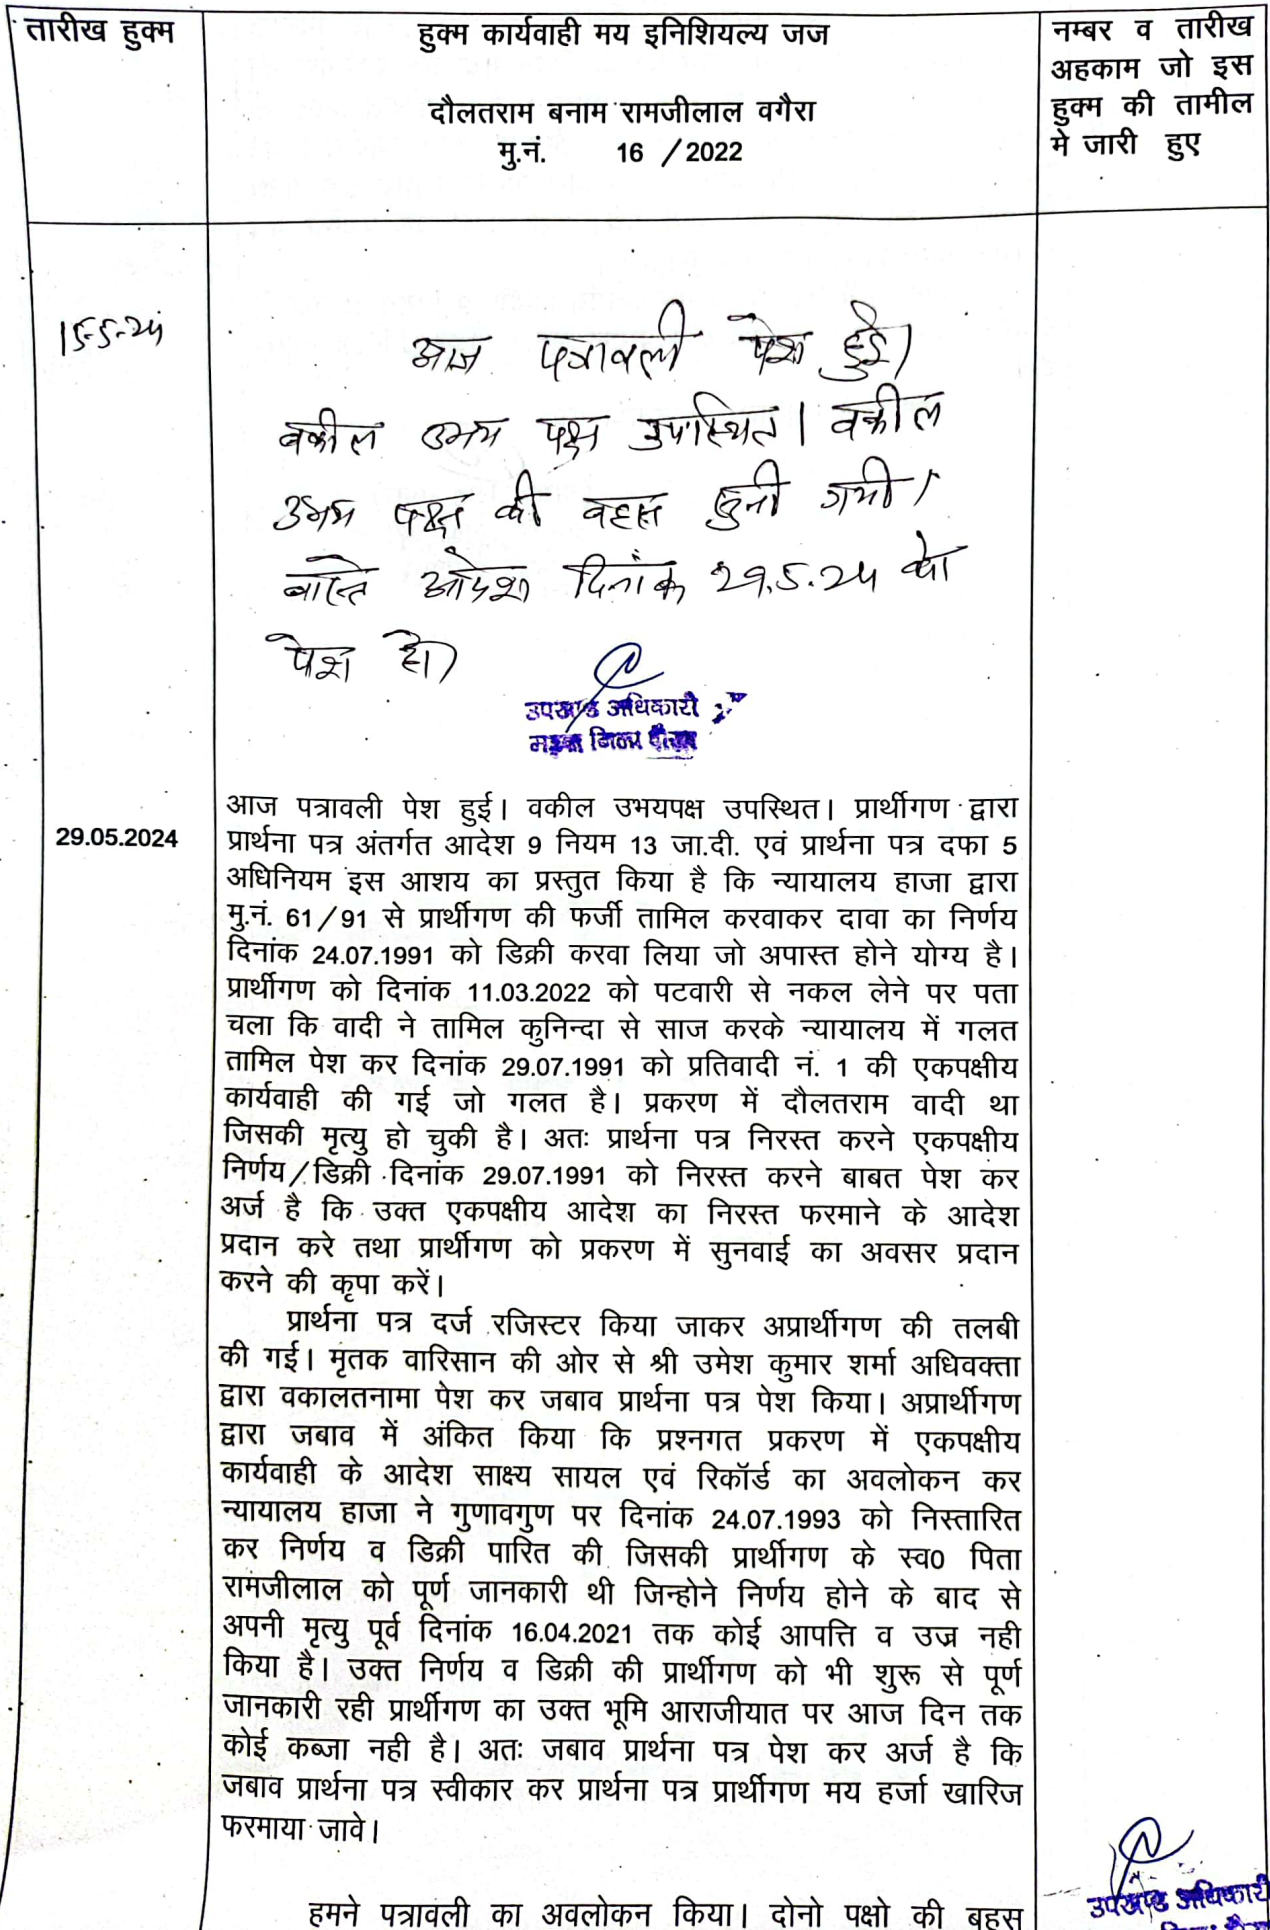 तारीख हुक्म
हुक्म कार्यवाही मय इनिशियल्य जज
दौलतराम बनाम रामजीलाल वगैरा
मु.नं. 16 / 2022
नम्बर व तारीख
अहकाम जो इस
हुक्म की तामील
मे जारी हुए
15-5-24
आज पत्रावली पेश हुई।
वकील उभय पक्ष उपस्थित। वकील
उभय पक्ष की बहस सुनी गयी।
वास्ते आदेश दिनांक 29.5.24 को
पेश हो।
उपखण्ड अधिकारी
29.05.2024
आज पत्रावली पेश हुई। वकील उभयपक्ष उपस्थित। प्रार्थीगण द्वारा
प्रार्थना पत्र अंतर्गत आदेश 9 नियम 13 जा.दी. एवं प्रार्थना पत्र दफा 5
अधिनियम इस आशय का प्रस्तुत किया है कि न्यायालय हाजा द्वारा
मु.नं. 61/91 से प्रार्थीगण की फर्जी तामिल करवाकर दावा का निर्णय
दिनांक 24.07.1991 को डिक्री करवा लिया जो अपास्त होने योग्य है।
प्रार्थीगण को दिनांक 11.03.2022 को पटवारी से नकल लेने पर पता
चला कि वादी ने तामिल कुनिन्दा से साज करके न्यायालय में गलत
तामिल पेश कर दिनांक 29.07.1991 को प्रतिवादी नं. 1 की एकपक्षीय
कार्यवाही की गई जो गलत है। प्रकरण में दौलतराम वादी था
जिसकी मृत्यु हो चुकी है। अतः प्रार्थना पत्र निरस्त करने एकपक्षीय
निर्णय/डिक्री दिनांक 29.07.1991 को निरस्त करने बाबत पेश कर
अर्ज है कि उक्त एकपक्षीय आदेश का निरस्त फरमाने के आदेश
प्रदान करे तथा प्रार्थीगण को प्रकरण में सुनवाई का अवसर प्रदान
करने की कृपा करें।
प्रार्थना पत्र दर्ज रजिस्टर किया जाकर अप्रार्थीगण की तलबी
की गई। मृतक वारिसान की ओर से श्री उमेश कुमार शर्मा अधिवक्ता
द्वारा वकालतनामा पेश कर जबाव प्रार्थना पत्र पेश किया। अप्रार्थीगण
द्वारा जबाव में अंकित किया कि प्रश्नगत प्रकरण में एकपक्षीय
कार्यवाही के आदेश साक्ष्य सायल एवं रिकॉर्ड का अवलोकन कर
न्यायालय हाजा ने गुणावगुण पर दिनांक 24.07.1993 को निस्तारित
कर निर्णय व डिक्री पारित की जिसकी प्रार्थीगण के स्व0 पिता
रामजीलाल को पूर्ण जानकारी थी जिन्होने निर्णय होने के बाद से
अपनी मृत्यु पूर्व दिनांक 16.04.2021 तक कोई आपत्ति व उज्र नही
किया है। उक्त निर्णय व डिक्री की प्रार्थीगण को भी शुरू से पूर्ण
जानकारी रही प्रार्थीगण का उक्त भूमि आराजीयात पर आज दिन तक
कोई कब्जा नही है। अतः जबाव प्रार्थना पत्र पेश कर अर्ज है कि
जबाव प्रार्थना पत्र स्वीकार कर प्रार्थना पत्र प्रार्थीगण मय हर्जा खारिज
फरमाया जावे।
हमने पत्रावली का अवलोकन किया। दोनो पक्षो की बहस
उपखण्ड अधिकारी